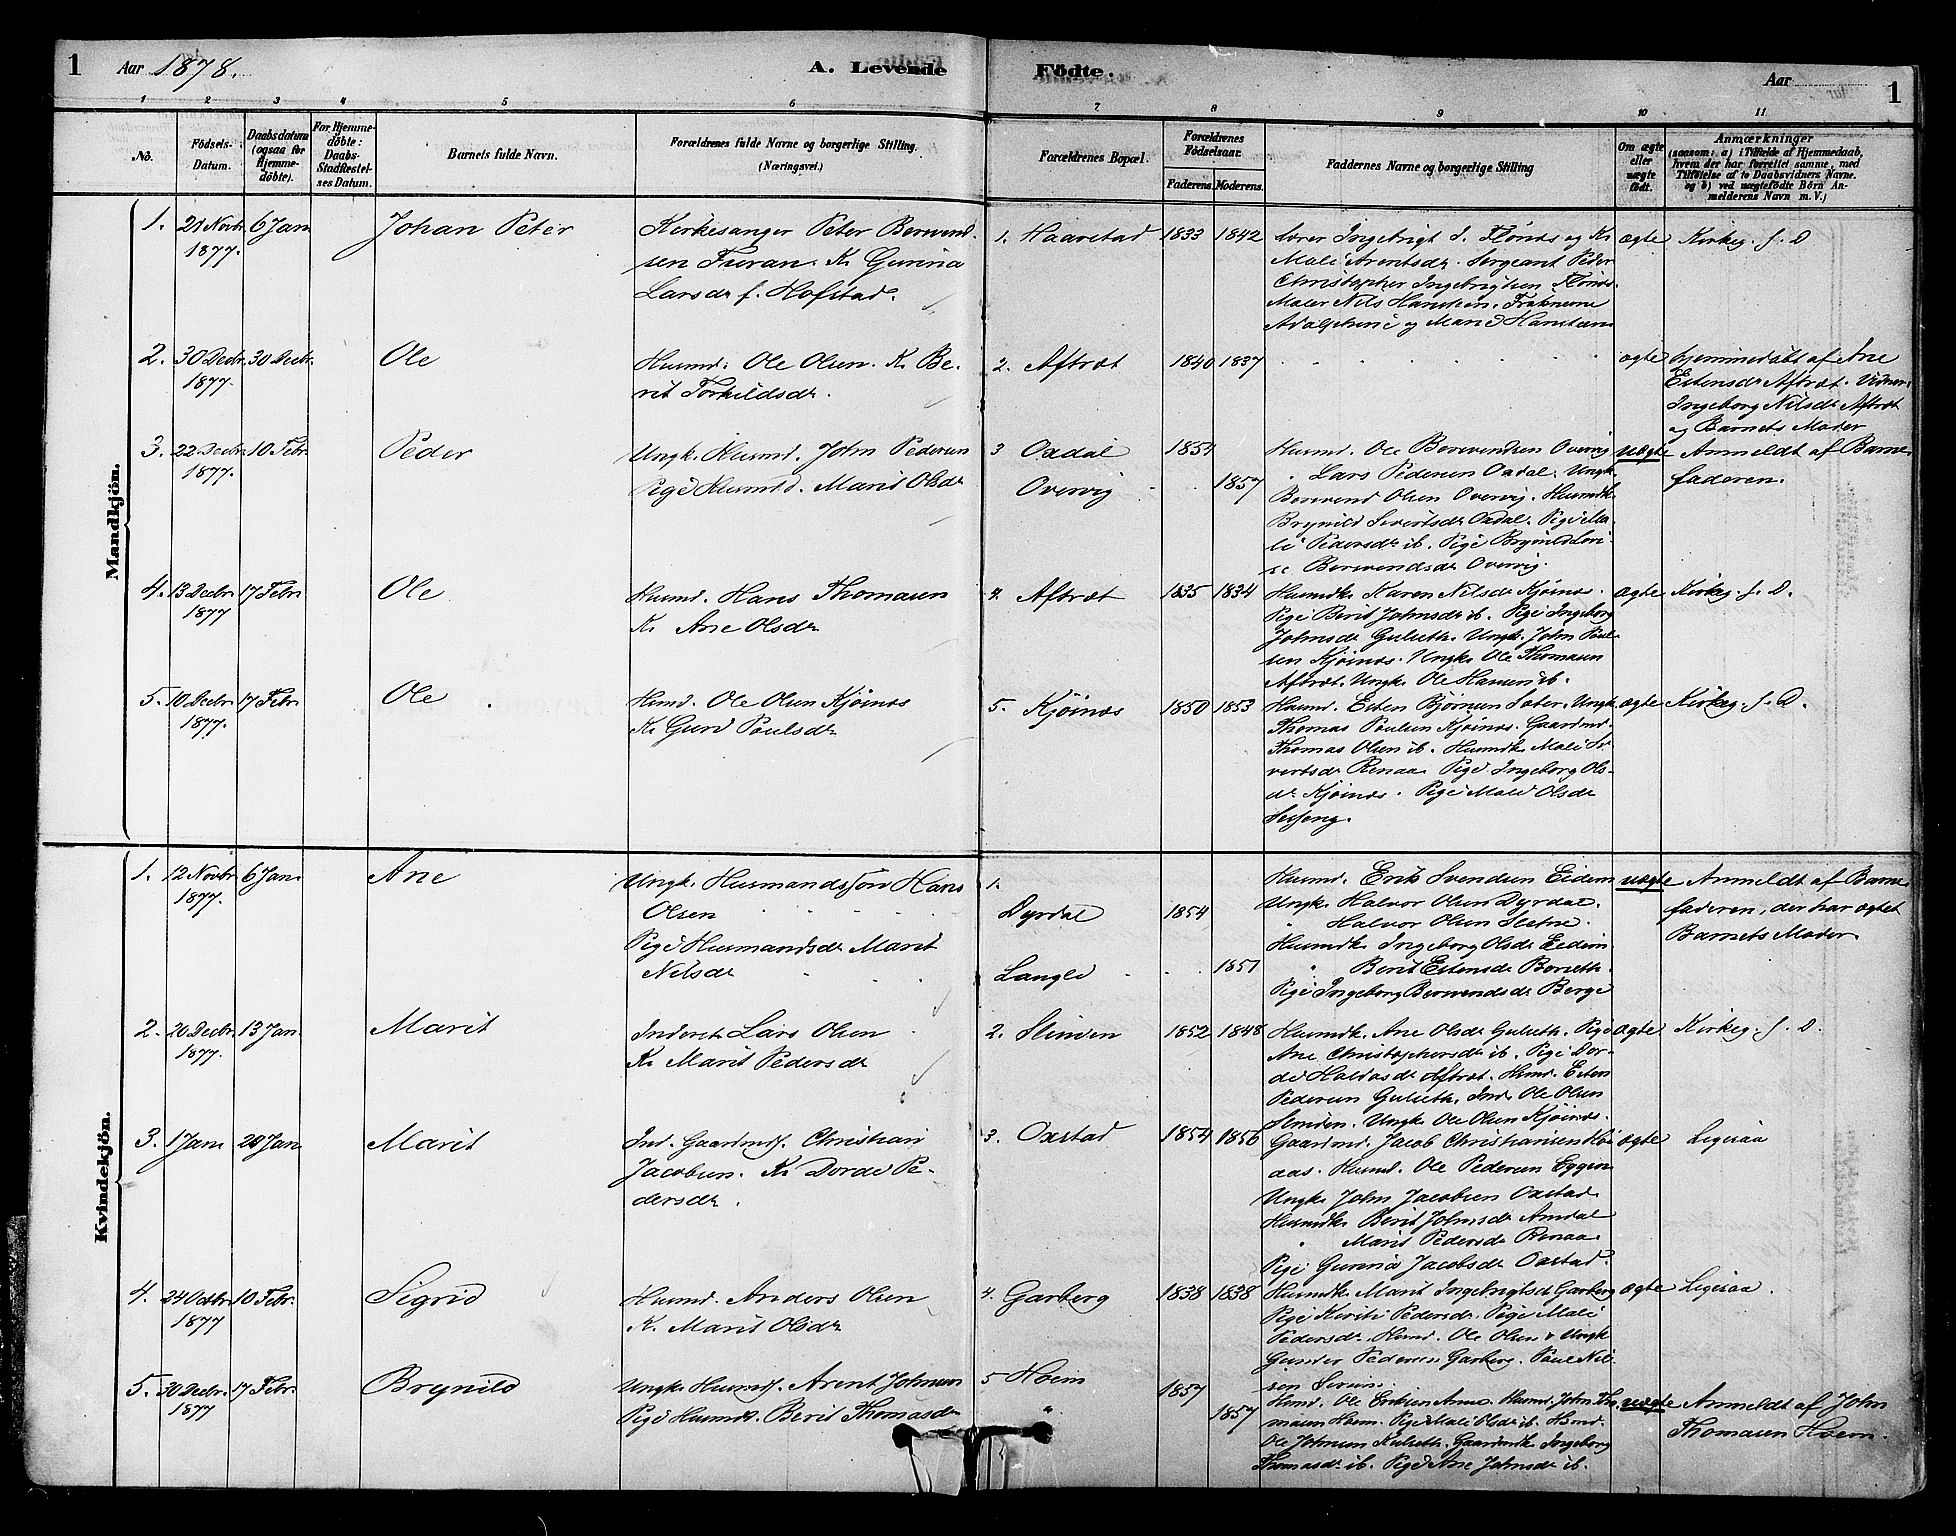 1 Aar 1878. A. Levende Födte. Aar 1
1 2 3 4 5 6 7 8 9 10 11
No.
Födsels-
Datum.
Daabsdatum
(ogsaa for
Hjemme-
döbte).
For Hjemme-
döbte:
Daabs-
Stadfæstel-
ses Datum.
Barnets fulde Navn.
Forældrenes fulde Navne og borgerlige Stilling.
(Næringsvei.)
Forældrenes Bopæl.
Forældrenes
Födselsaar.
Faderens. Moderens.
Faddernes Navne og borgerlige Stilling
Om ægte
eller
uægte
födt.
Anmærkninger
(saasom: a) i Tilfælde af Hjemmedaab,
hvem der har forrettet samme, med
Tilföielse af to Daabsvidners Navne.
og b) ved uægtefödte Börn An-
melderens Navn m. V.)
Mandkjön.
1. 21 Novbr 6 Jan Johan Peter
1877.
Kirkesanger Peter Berwend
sen Furan. K. Gurina
Larsdr f. Hofstad.
1. Haarstad 1833 1842
Lærer Ingebrigt J. Flönæs og K.
Mali Arentsdr. Sergeant Peder
Christopher Ingebrigtsen Flönæs.
Maler Nils Hanssen. Frøknerne
og Marie
ægte Kirkeg. f. D
2. 30 Decbr. 30 Decbr. Ole
1877.
Husmd: Ole Olsen. K. Be-
rit Torkildsdr.
2. Aftræt 1840 1837
ægte hjemmedøbt af Ane
Estensdr Aftræt. Vidner:
Ingeborg Nilsdr Aftræt
og Barnets Moder
3. 22 Decbr. 10 Febr. Peder
1877.
Ungk. Husmd. John Pedersen
Pige Husmd. Marit Olsdr
3 Oxdal 1851
Overvig 1857
Husmd. Ole Berwendsen Overvig
" Lars Pedersen Oxdal. Ungk.
Berwend Olsen Overvig. Husmdk.
Brynild Sivertsdr Oxdal. Pige Ma-
li Pedersdr ib. Pige Brynild Lovi-
se Berwendsdr Overvig.
uægte Anmeldt af Barne-
faderen.
4. 13 Decbr 17 Febr Ole
1877
Husmd. Hans Thomasen
K. Ane Olsdr
4. Aftræt 1835 1834
Husmdk. Karen Nilsdr Kjøinæs.
Pige Berit Johnsdr ib. Pige Ingeborg
Johnsdr Gulseth. Ungk. John Paul-
sen Kjøinæs. Ungk. Ole Thomasen
Aftræt. Ungk. Ole Hansen ib.
ægte Kirkeg. f. D.
5. 10 Decbr 17 Febr Ole
1877.
Husmd. Ole Olsen Kjøinæs
K. Guru Paulsdr
5. Kjøinæs 1850 1853
Husmd. Esten Bjørnsen Sæter. Ungk.
Thomas Paulsen Kjøinæs. Gaardmd.
Thomas Olsen ib. Husmdk. Mali Si-
vertsdr Renaa. Pige Ingeborg Ols-
dr Kjøinæs. Pige Mali Olsdr
ægte Kirkeg. f. D.
Kvindekjön.
1. 12 Novbr 6 Jan Ane
1877.
Ungk. Husmandssøn Hans
Olsen
Pige Husmandsdr Marit
Nilsdr
1.
Dyrdal 1854
Langli 1851
Husmd. Erik Svendsen Eidem
Ungk. Halvor Olsen Dyrdal.
" Halvor Olsen Sletne.
Husmdk. Ingeborg Olsdr Eidem
" Berit Estensdr Borseth.
Pige Ingeborg Berwendsdr Berge
uægte Anmeldt af Barne-
faderen, der har ægtet
Barnets Moder.
2. 20 Decbr. 13 Jan Marit
1877.
Inderst. Lars Olsen
K. Marit Pedersdr
2. Slinden 1852 1848
Husmdk. Ane Olsdr Gulseth. Pige
Ane Christophersdr ib. Pige Dor-
dei Haldosdr Aftræt. Husmd. Esten
Pedersen Gulseth. Ind. Ole Olsen
Slinden. Ungk. Ole Olsen Kjøinæs.
ægte Kirkeg. f. D.
3. 1 Jan 20 Jan Marit
Ind. Gaardmdf. Christian
Jacobsen. K. Dorde Pe-
dersdr.
3. Oxstad 1854 1856
Gaardmd. Jacob Christiansen
Husmd. Ole Pedersen Eggen
Ungk. John Jacobsen Oxstad
Husmdk. Berit Johnsdr Amdal
" Marit Pedersdr Renaa
Pige Gurina Jacobsdr Oxstad.
ægte Ligesaa
4. 24 Octbr. 10 Febr. Sigrid
1877
Husmd. Anders Olsen
K. Marit Olsdr
4. Garberg 1838 1838
Husmdk. Marit Ingebrigtsdr Garberg
Pige Kirsti Pedersdr. Pige Mali
Pedersdr. Husmd. Ole Olsen & Ungk
Gunder Pedersen Garberg. Paul Nil-
sen
ægte Ligesaa.
5. 30 Decbr. 17 Febr. Brynild
1877
Ungk. Husmdf. Arent Johnsen
Pige Husmdr. Berit Thomasdr
5 Hoem 1857
" 1857
Husmd. Ole Eriksen Aune. Husmd. John Tho-
masen Hoem. Pige Mali Olsdr ib. Husmd.
Ole Johnsen Kulseth. Gaardmdk. Ingeborg
Thomasdr ib. Pige Ane Johnsdr ib.
uægte Anmeldt af John
Thomasen Hoem.